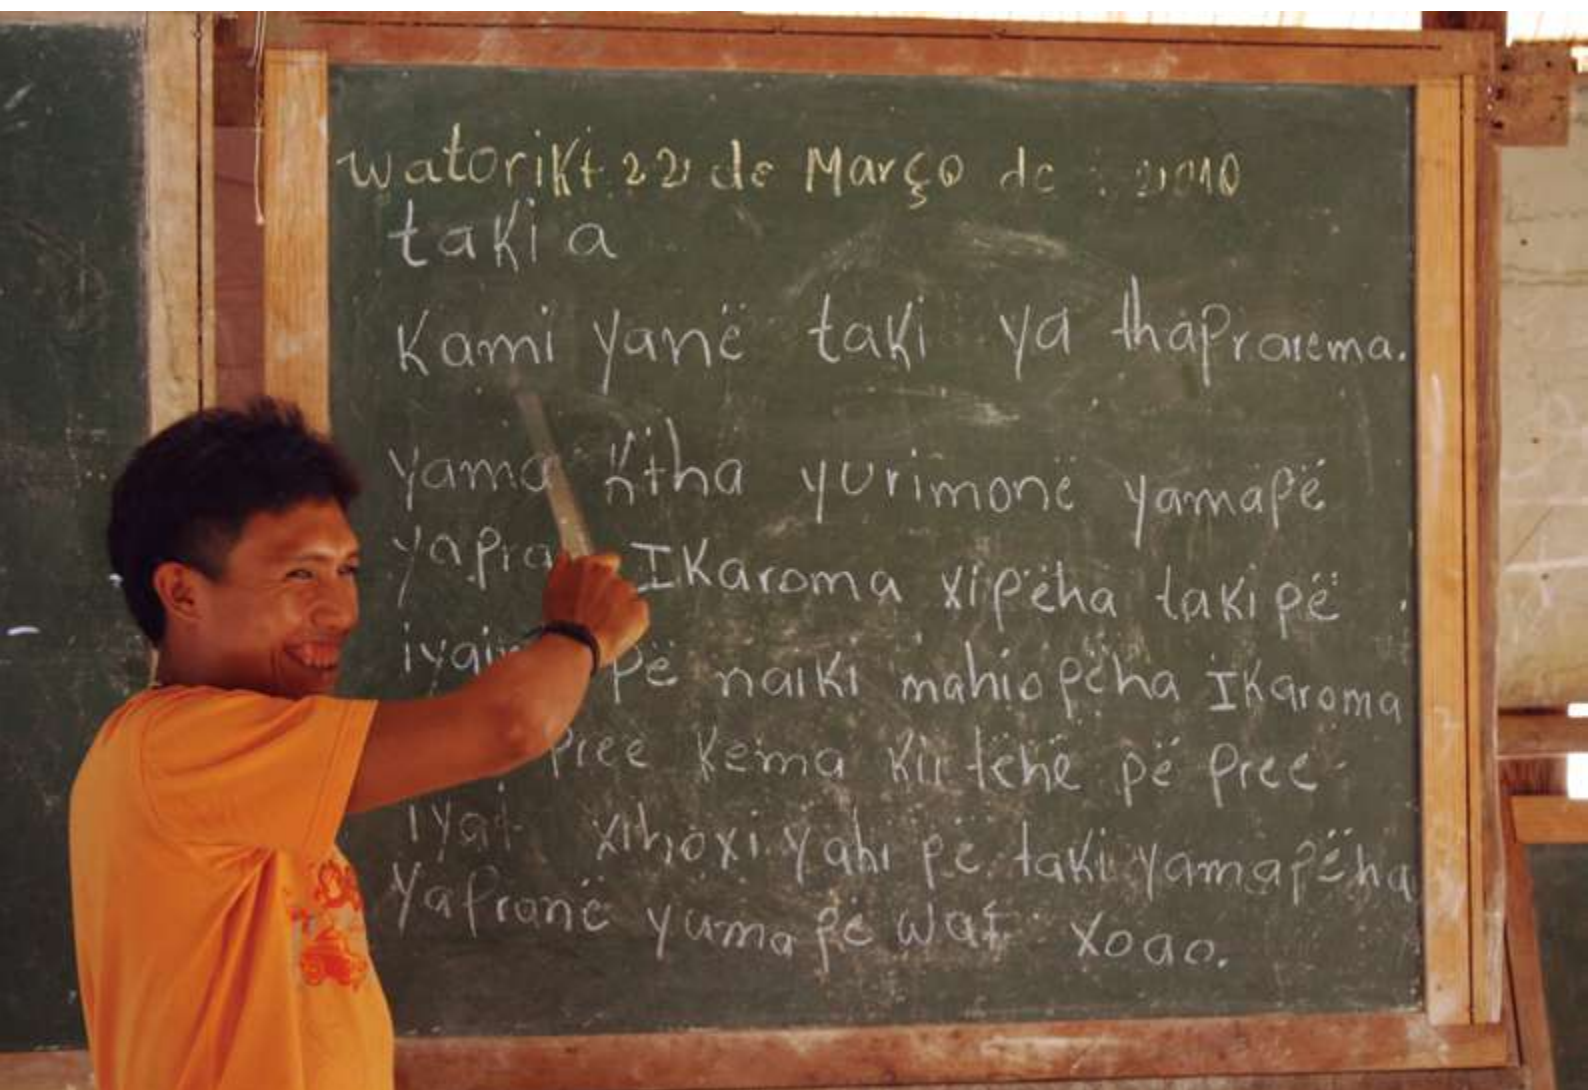 watorikɨ 22 de Março de : 2010
taki a
Kami yanë taki ya thaprarema.
yama kɨha yurimonë yamapë
yapra Ikaroma xipëha taki pë .
pë naiki mahiopëha Ikaroma
pree kema kii tëhë pë pree
iyaɨ xihoxi yahi pë taki yamapëha
yapranë yuma pë waɨ xoao.